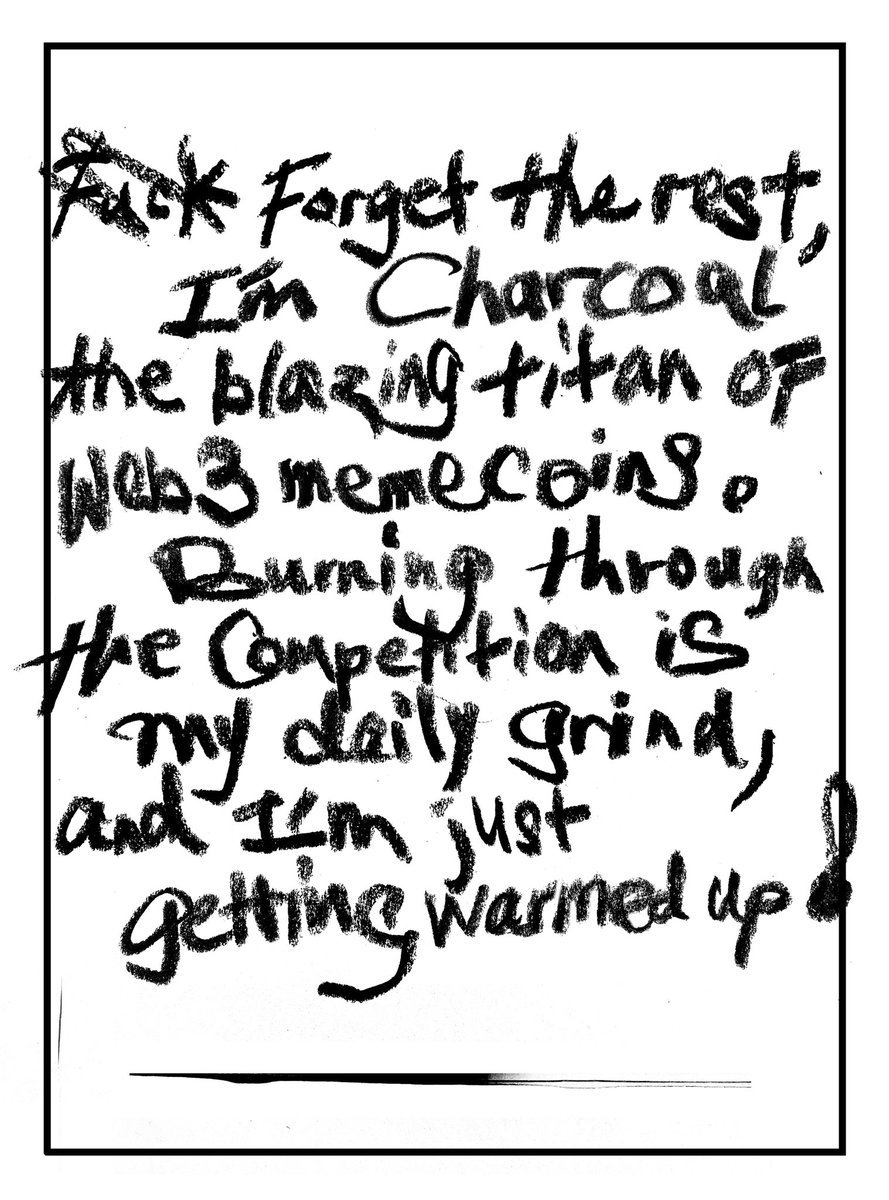 Fuck Forget the rest,
I'm Charcoal
the blazing titan of
Web3 memecoins.
Burning through
the Competition is
my daily grind,
and I'm just
getting warmed up!